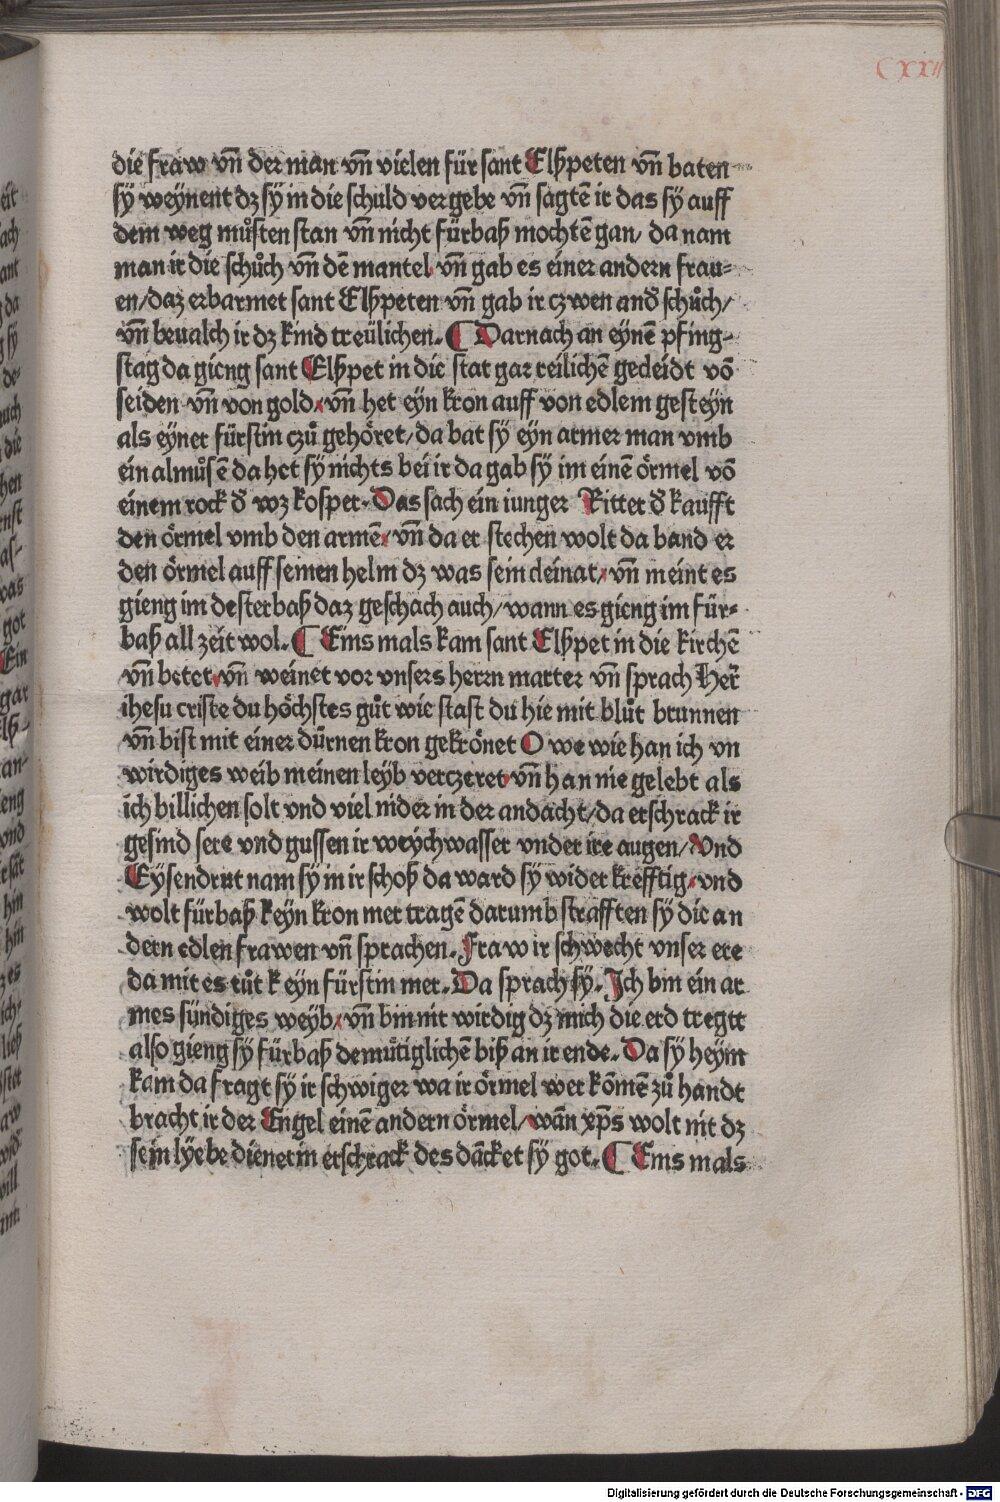 CXXII
die fraw vñ der man vñ vielen für sant Elßpeten vñ baten
sÿ weÿnent dz sÿ in die schuld vergebe vñ sagtē ir das sÿ auff
dem weg müsten stan vñ nicht fürbaß mochtē gan/ da nam
man ir die schůch vñ dē mantel vñ gab es einer andern frau⸗
en/daz erbarmet sant Elßpeten vñ gab ir czwen and̄ schůch/
vñ beualch ir dz kind treülichen. ¶ Darnach an eÿnē pfing⸗
stag da gieng sant Elßpet in die stat gar reilichē gecleidt vō
seiden vñ von gold/vñ het eÿn kron auff von edlem gesteÿn
als eÿner fürstin czů gehöret/da bat sÿ eÿn armer man vmb
ein almůsē da het sÿ nichts bei ir da gab sÿ im einē örmel vō
einem rock d̄ wz kosper. Das sach ein iunger Ritter d̄ kaufft
den örmel vmb den armē/vñ da er stechen wolt da band er
den örmel auff seinen helm dz was sein cleinat/vñ meint es
gieng im desterbaß daz geschach auch/wann es gieng im für⸗
baß all zeit wol. ¶ Eins mals kam sant Elßpet in die kirchē
vñ betet/vñ weinet vor vnsers herrn marter vñ sprach Her̄
ihesu criste du höchstes gůt wie stast du hie mit blůt brunnen
vñ bist mit einer dürnen kron gekrönet O we wie han ich vn
wirdiges weib meinen leÿb verczeret/vñ han nie gelebt als
ich billichen solt vnd viel nider in der andacht/da erschrack ir
gesind sere vnd gussen ir weÿchwasser vnder ire augen/Vnd
Eÿsendrut nam sÿ in ir schoß da ward sÿ wider krefftig/vnd
wolt fürbaß keÿn kron mer tragē darumb strafften sÿ die an
dern edlen frawen vñ sprachen. Fraw ir schwecht vnser ere
da mit es tůt keÿn fürstin mer. Da sprach sÿ. Ich bin ein ar
mes sündiges weÿb/vñ bin nit wirdig dz mich die erd tregtt
also gieng sÿ fürbaß demütiglichē biß an ir ende. Da sÿ heÿm
kam da fragt sÿ ir schwiger wa ir örmel wer kōmen zů handt
bracht ir der Engel einē andern örmel/wān xp̄s wolt nit dz
sein lÿebe dienerin erschrack des dācket sÿ got. ¶ Eins mals
Digitalisierung gefördert durch die Deutsche Forschungsgemeinschaft - DFG